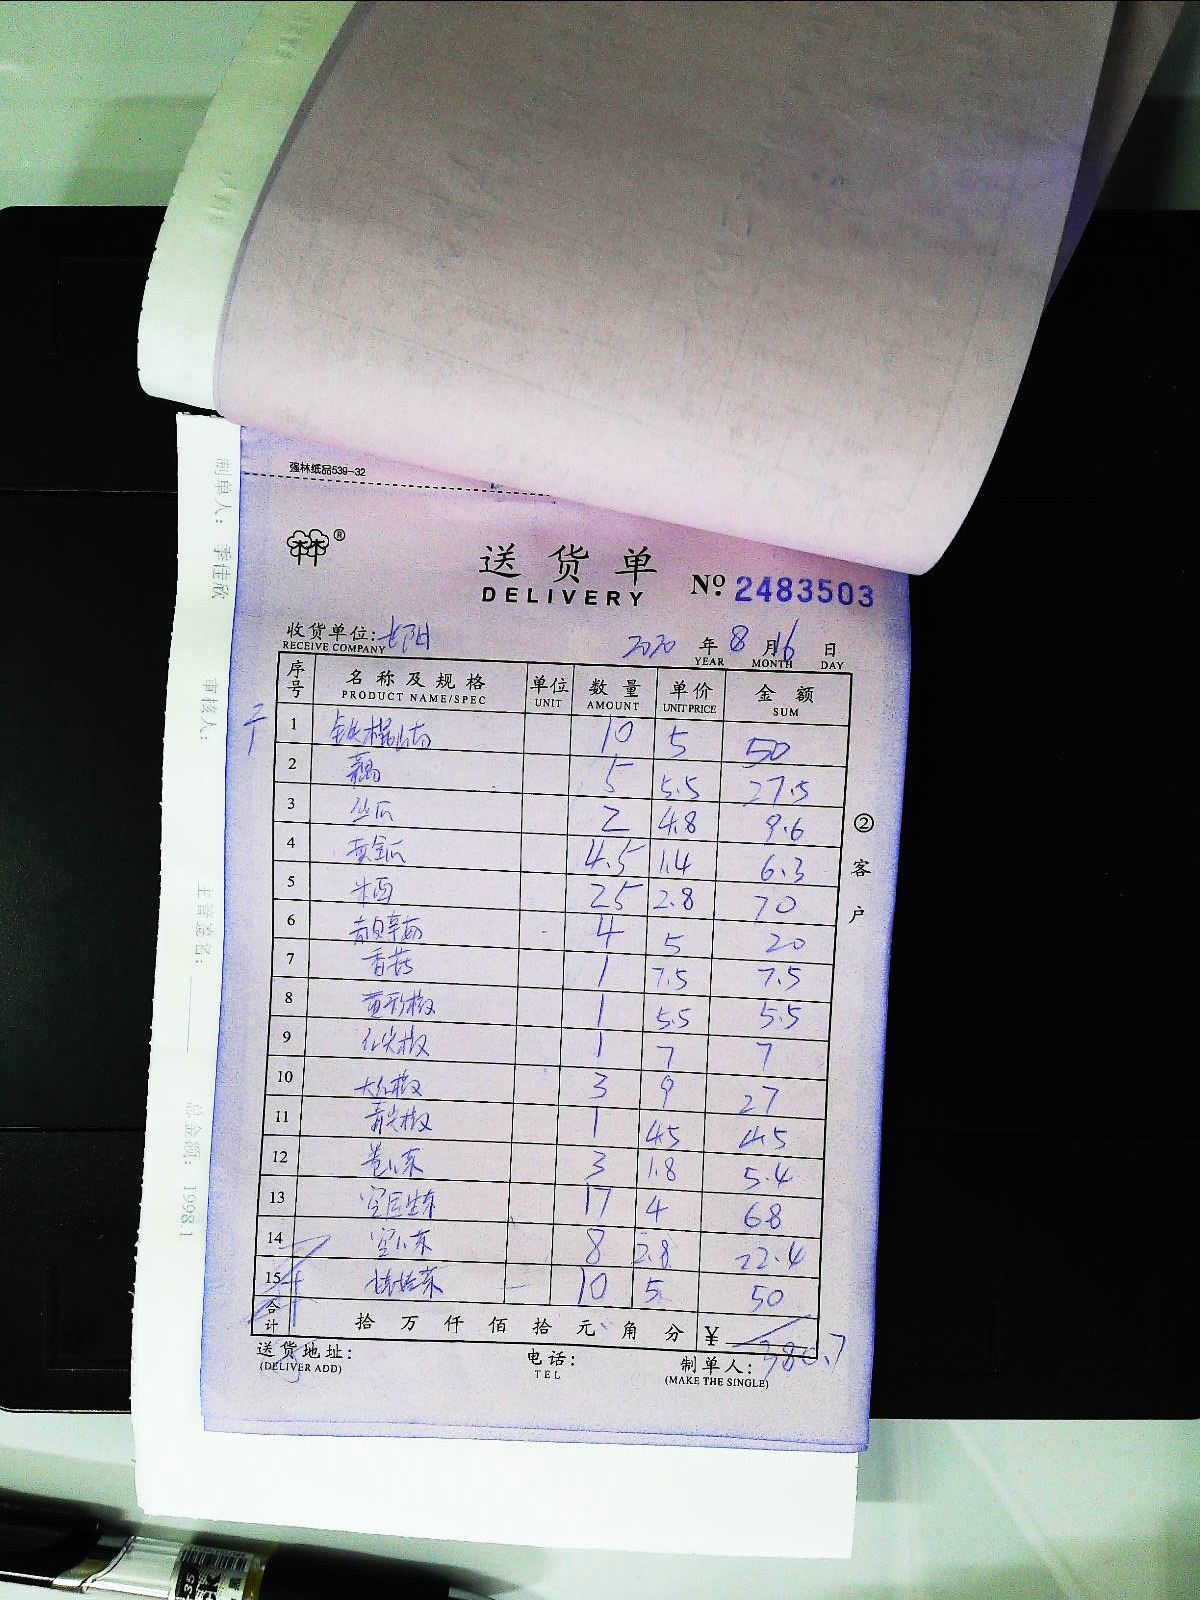 强林纸品539-32
送货单
DELIVERY
№ 2483503
收货单位: 七阳
RECEIVE COMPANY
2020 年 8 月 16 日
YEAR MONTH DAY
序号 名称及规格 单位 数量 单价 金额
PRODUCT NAME/SPEC UNIT AMOUNT UNIT PRICE SUM
1 铁棍山药 10 5 50
2 藕 5 5.5 27.5
3 丝瓜 2 4.8 9.6
4 黄金瓜 4.5 1.4 6.3
5 25 2.8 70
6 4 5 20
7 香菇 1 7.5 7.5
8 黄彩椒 1 5.5 5.5
9 红尖椒 1 7 7
10 大红椒 3 9 27
11 青尖椒 1 4.5 4.5
12 卷心菜 3 1.8 5.4
13 17 4 68
14 空心菜 8 2.8 22.4
15 10 5 50
合计 拾 万 仟 佰 拾 元 角 分 ¥ 380.7
送货地址: 电话: 制单人:
(DELIVER ADD) TEL (MAKE THE SINGLE)
② 客户
制单人: 李佳欣
审核人:
主管签名:
总金额: 1998.1